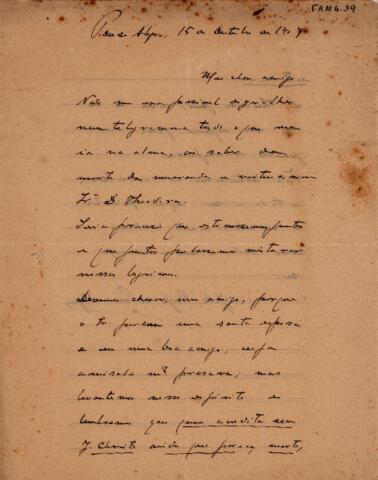 FAMG.39
Pouso Alegre, 15 de Outubro de 19
Meu caro amigo
Não me era possivel
num telegramma tudo o que me
ia na alma, ao saber da
morte da veneranda e virtuosissima
Sr.ª D. Theodora.
Seria preciso que
e que juntos podessemos misturar
nossas lagrimas.
Devemos chorar, meu amigo, porque
o Sr perdeu uma santa esposa
e eu uma boa amiga, cuja
amisade mto presava; mas
levantemos nosso espirito e
lembremos que quem acredita em
J. Christo ainda que pareça morto,